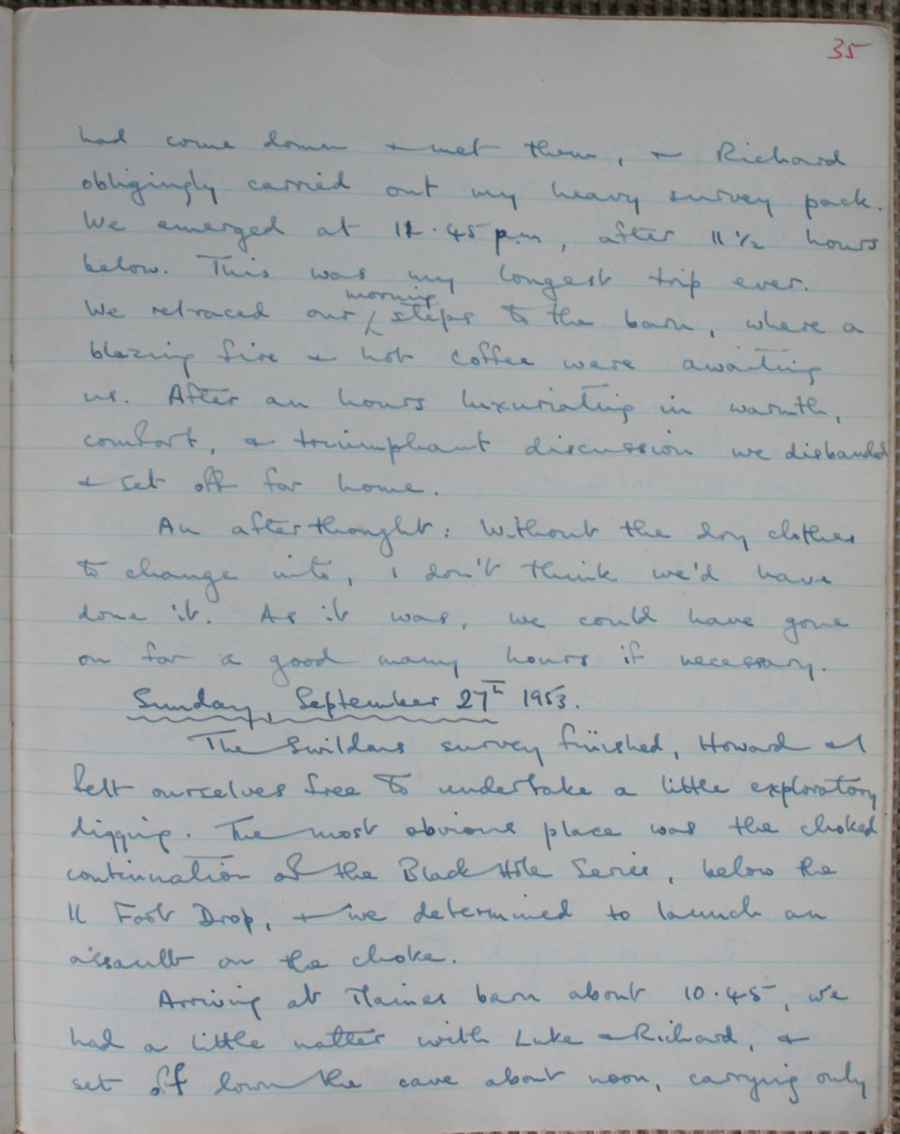 35
had come down & met them, & Richard
obligingly carried out my heavy survey pack.
We emerged at 12.45 p.m, after 11 1/2 hours
below. This was my longest trip ever.
We retraced our morning steps to the barn, where a
blazing fire & hot coffee were awaiting
us. After an hours luxuriating in warmth,
comfort, & triumphant discussion we disbanded
& set off for home.
An afterthought: Without the dry clothes
to change into, I don't think we'd have
done it. As it was, we could have gone
on for a good many hours if necessary.
Sunday, September 27th 1953.
The Swildons survey finished, Howard & I
felt ourselves free to undertake a little exploratory
digging. The most obvious place was the choked
continuation of the Black Hole Series, below the
Foot Drop, & we determined to launch an
assault on the choke.
Arriving at Maines barn about 10.45, we
had a little natter with Luke & Richard, &
set off down the cave about noon, carrying only